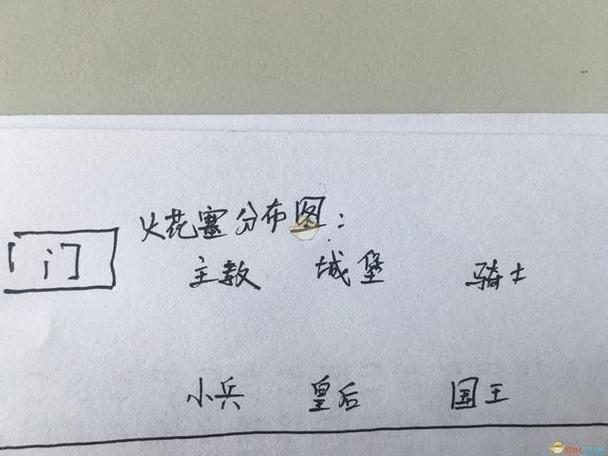 火花塞分布图:
门
主教 城堡 骑士
小兵 皇后 国王